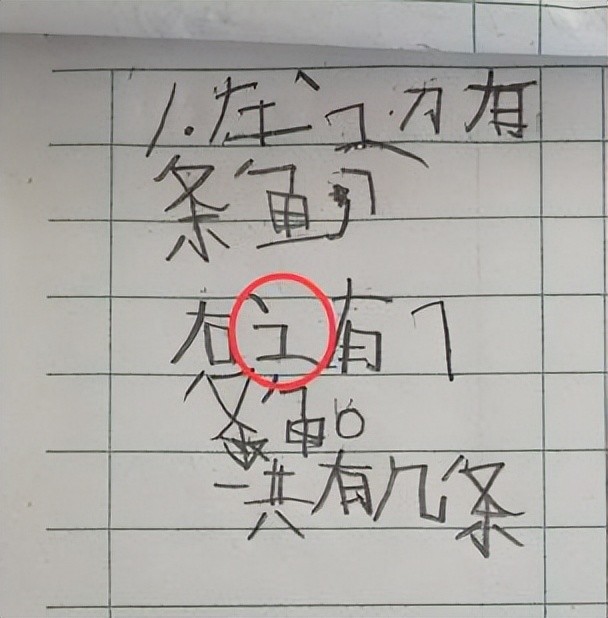 1.左边有
条鱼
右辶有7
条鱼。
一共有几条